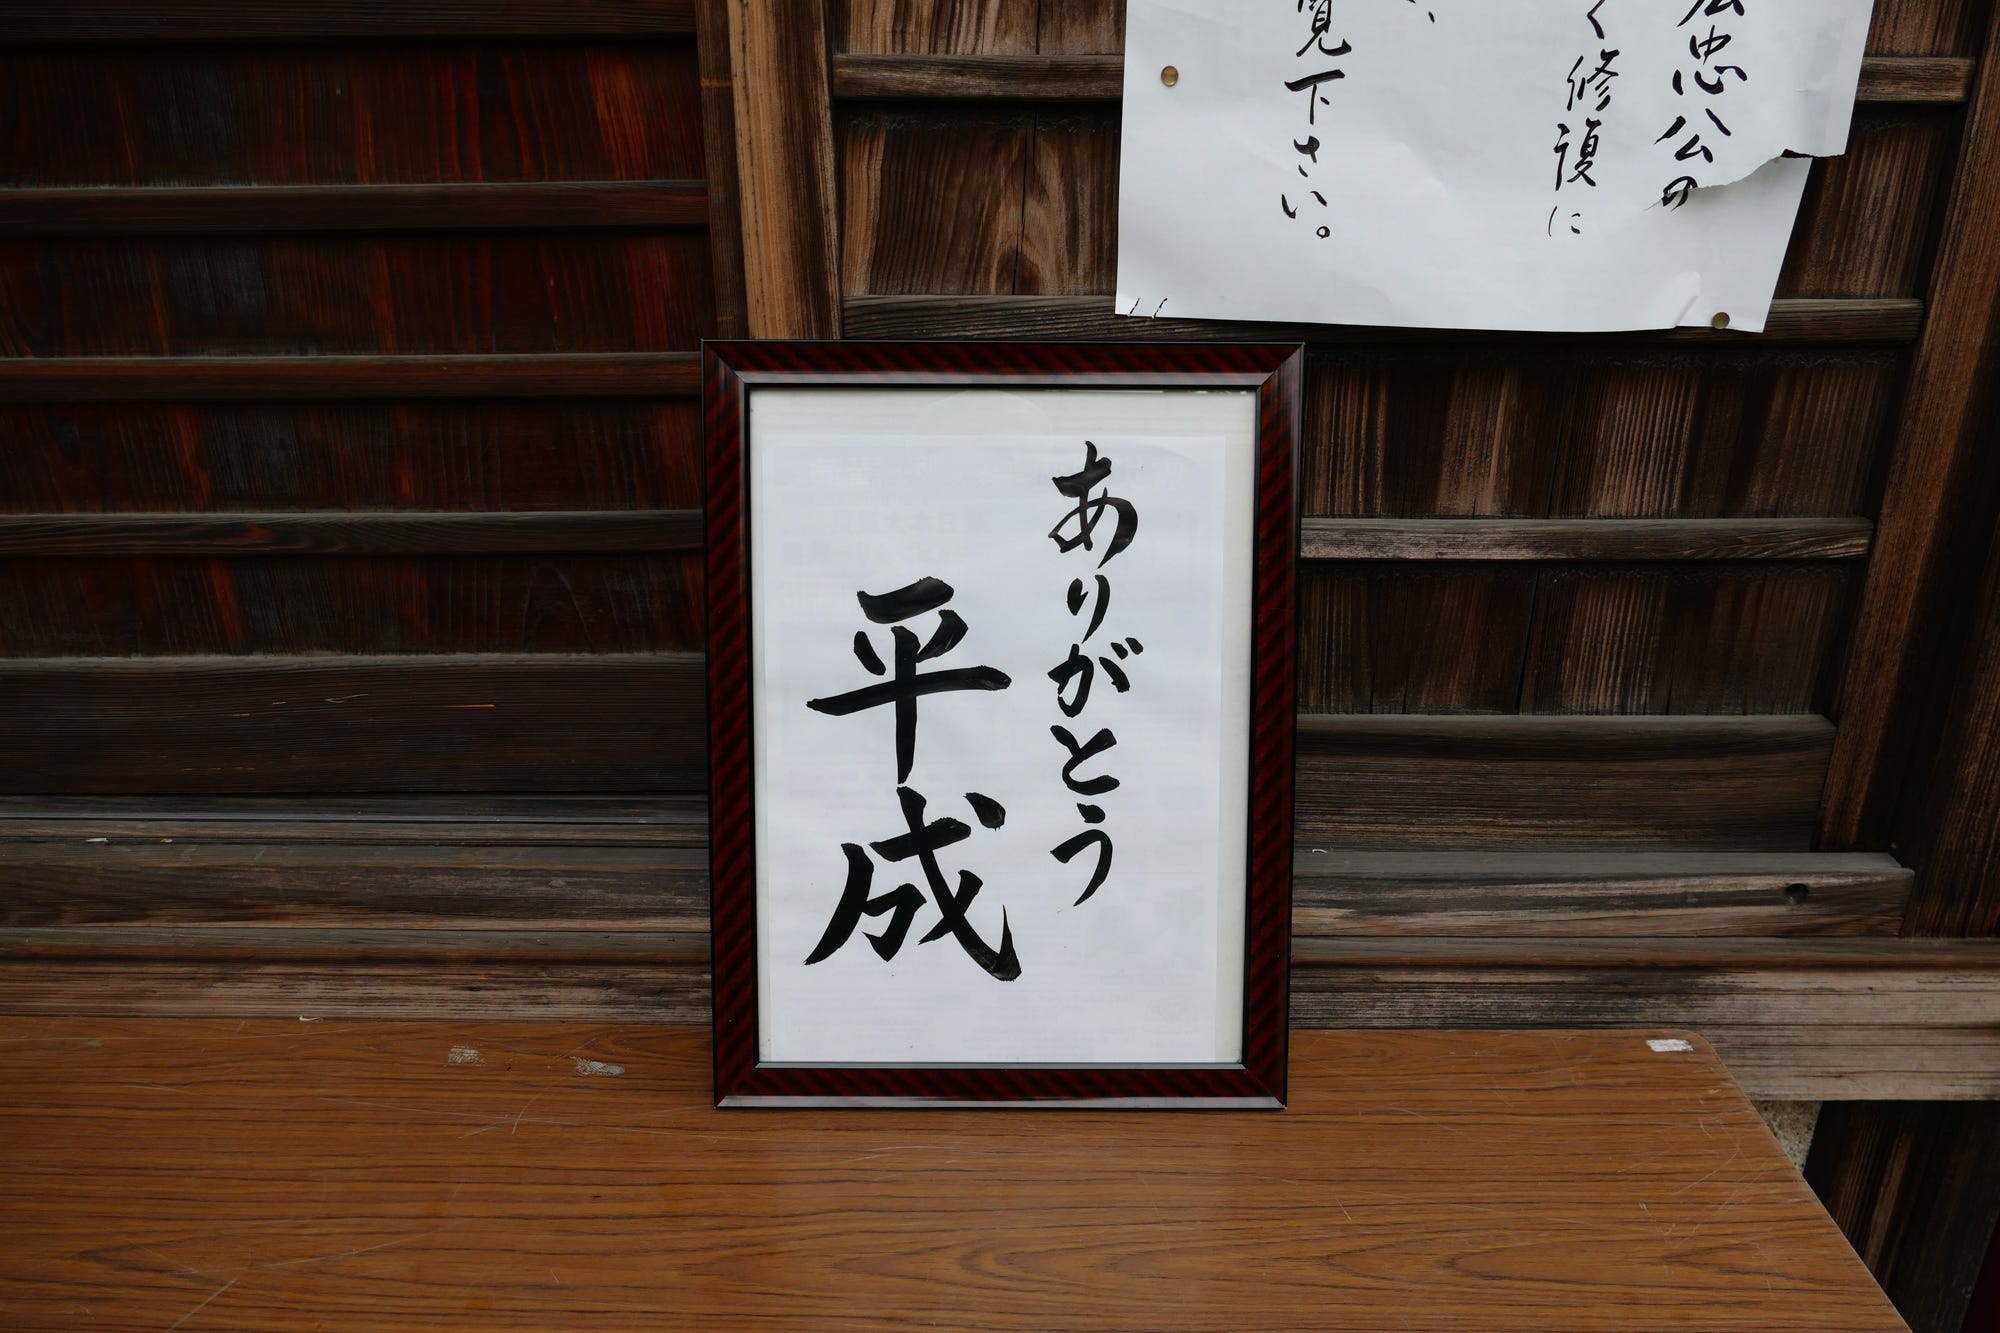 ありがとう
平成
忠公の
く修復に
覧下さい。